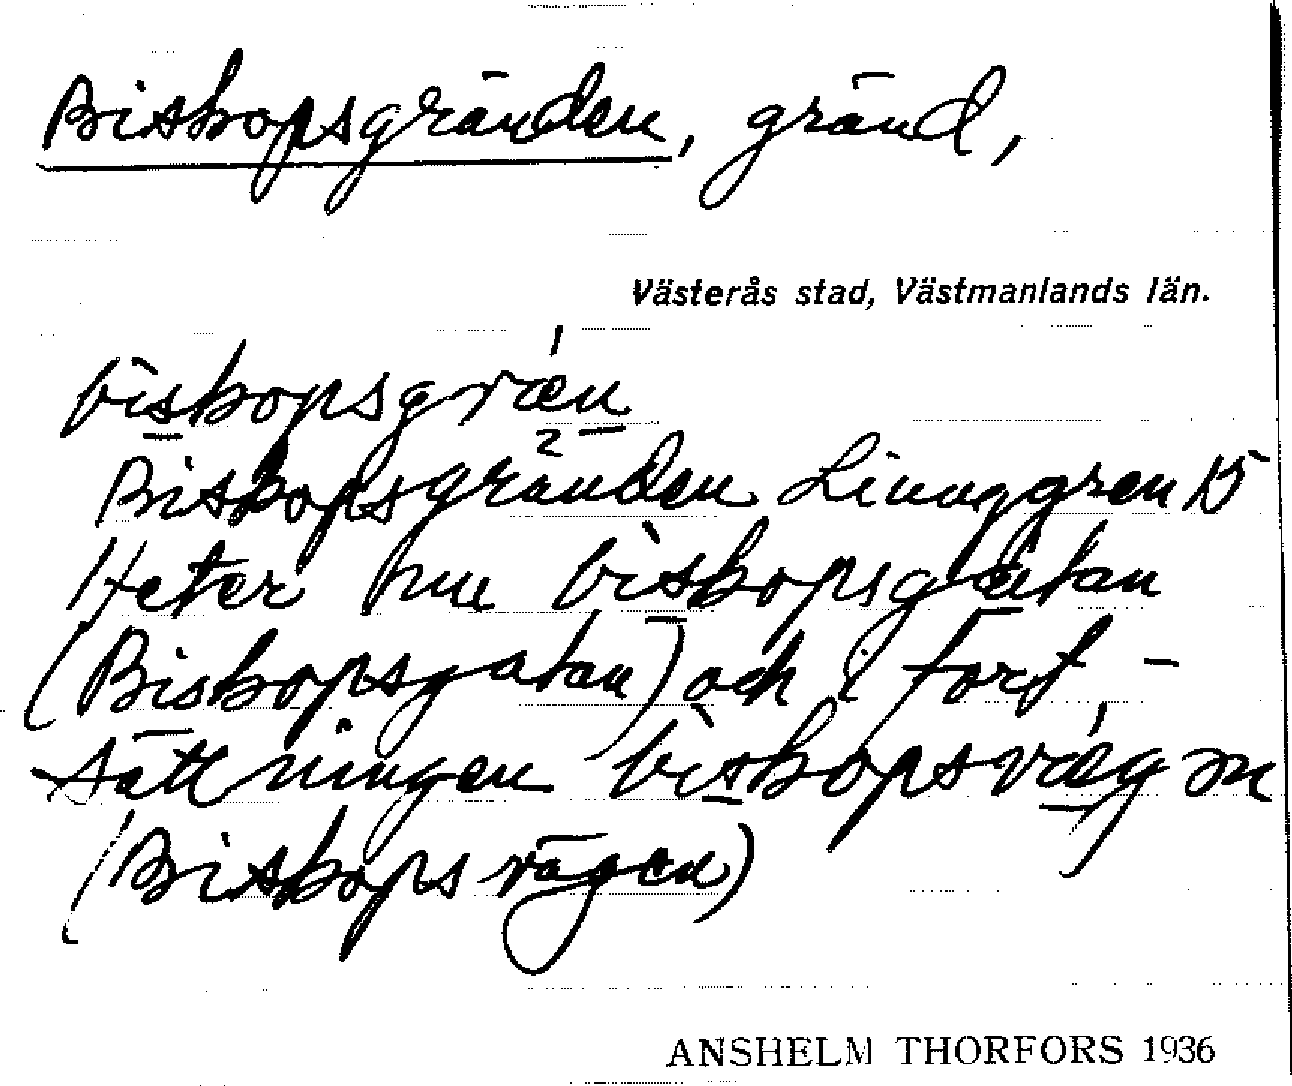 Biskopsgränden, gränd,
Västerås stad, Västmanlands län.
bìskopsgræ´n
2
Biskopsgränden Linnggren 15
Heter nu bìskopsgatan
(Biskopsgatan) och i fort-
sättningen bìskopsvæ´gen
(Biskopsvägen)
ANSHELM THORFORS 1936